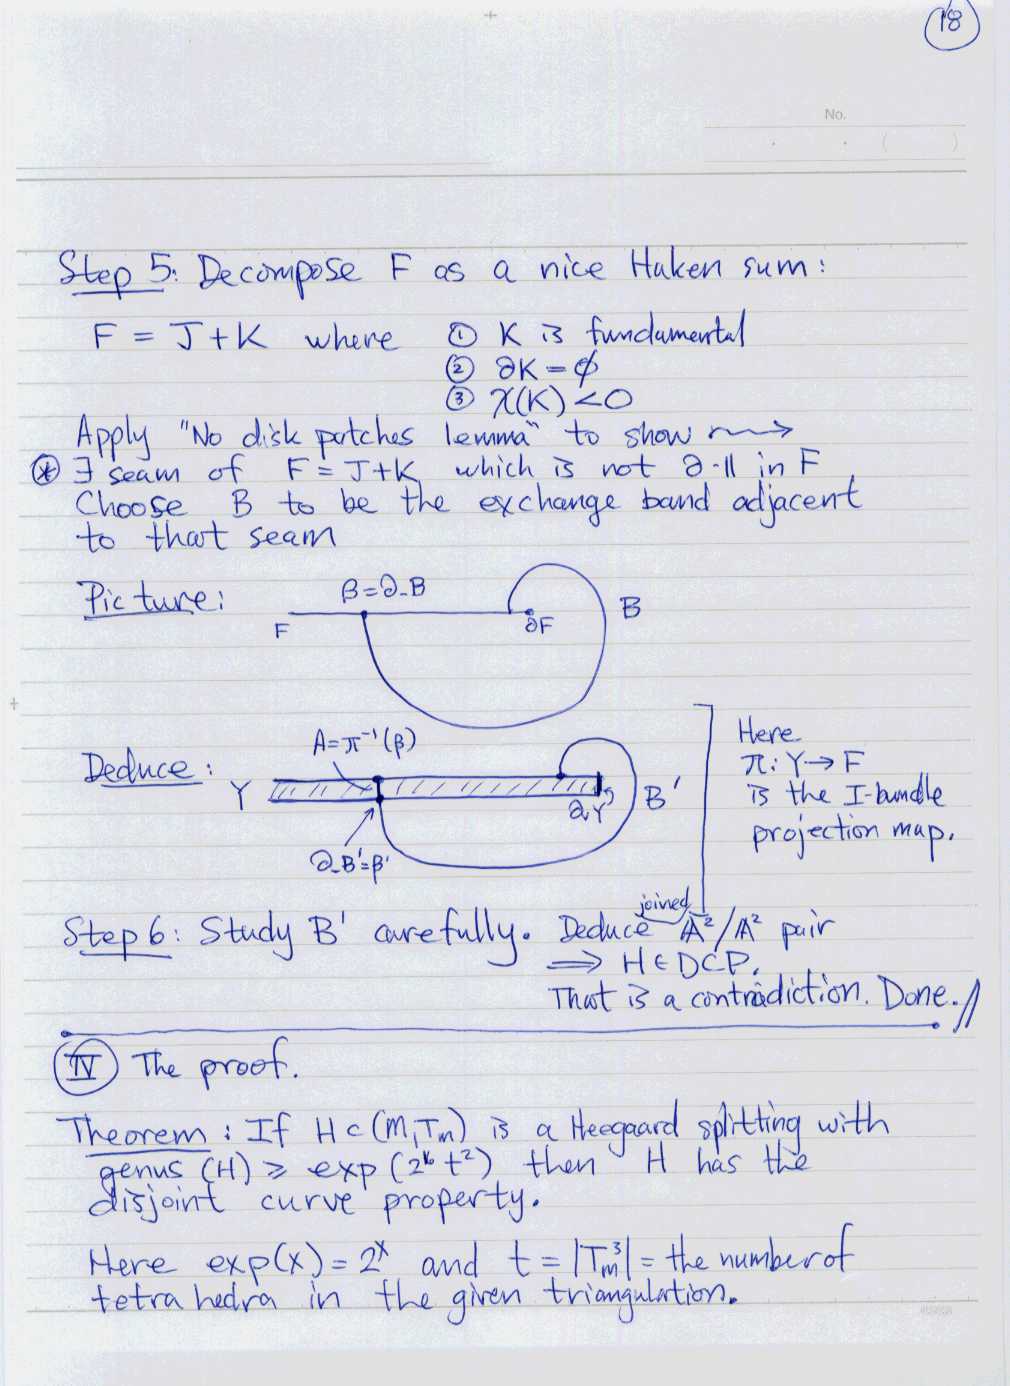 18
No.
Step 5: Decompose F as a nice Haken sum:
F = J + K where ① K is fundamental
② ∂K = φ
③ χ(K) < 0
Apply "No disk patches lemma" to show ⇝
⊛ ∃ seam of F = J + K which is not ∂-11 in F
Choose B to be the exchange band adjacent
to that seam
Picture:
β = ∂_B
F
∂F
B
Deduce:
A = π⁻¹(β)
Y
∂ᵥY
B'
∂_B' = β'
Here
π: Y → F
is the I-bundle
projection map.
Step 6: Study B' carefully. Deduce joined A²/A² pair
⇒ H ∈ DCP.
That is a contradiction. Done. //
IV The proof.
Theorem: If H ⊂ (M, Tₘ) is a Heegaard splitting with
genus (H) ≥ exp (2¹⁶ t²) then H has the
disjoint curve property.
Here exp(x) = 2ˣ and t = |Tₘ³| = the number of
tetrahedra in the given triangulation.